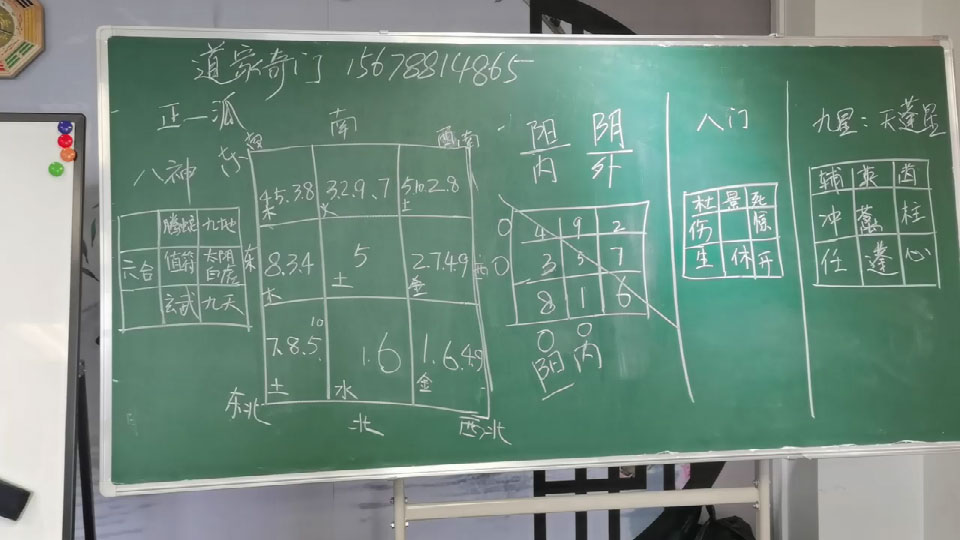 道家奇门 15678814865
正一派
八神
腾蛇 九地
六合 值符 太阴 白虎
玄武 九天
南
西南
4.5.3.8 木 3.2.9.7 火 5.10.2.8 土
东 8.3.4 木 5 土 2.7.4.9 金 西
7.8.5.10 土 1.6 水 1.6.4.9 金
东北 北 西北
阳 阴
内 外
0 4 9 2
0 3 5 7
8 1 6
0 0
阳 内
八门
杜 景 死
伤 惊
生 休 开
九星:天蓬星
辅 英 芮
冲 禽 柱
任 蓬 心